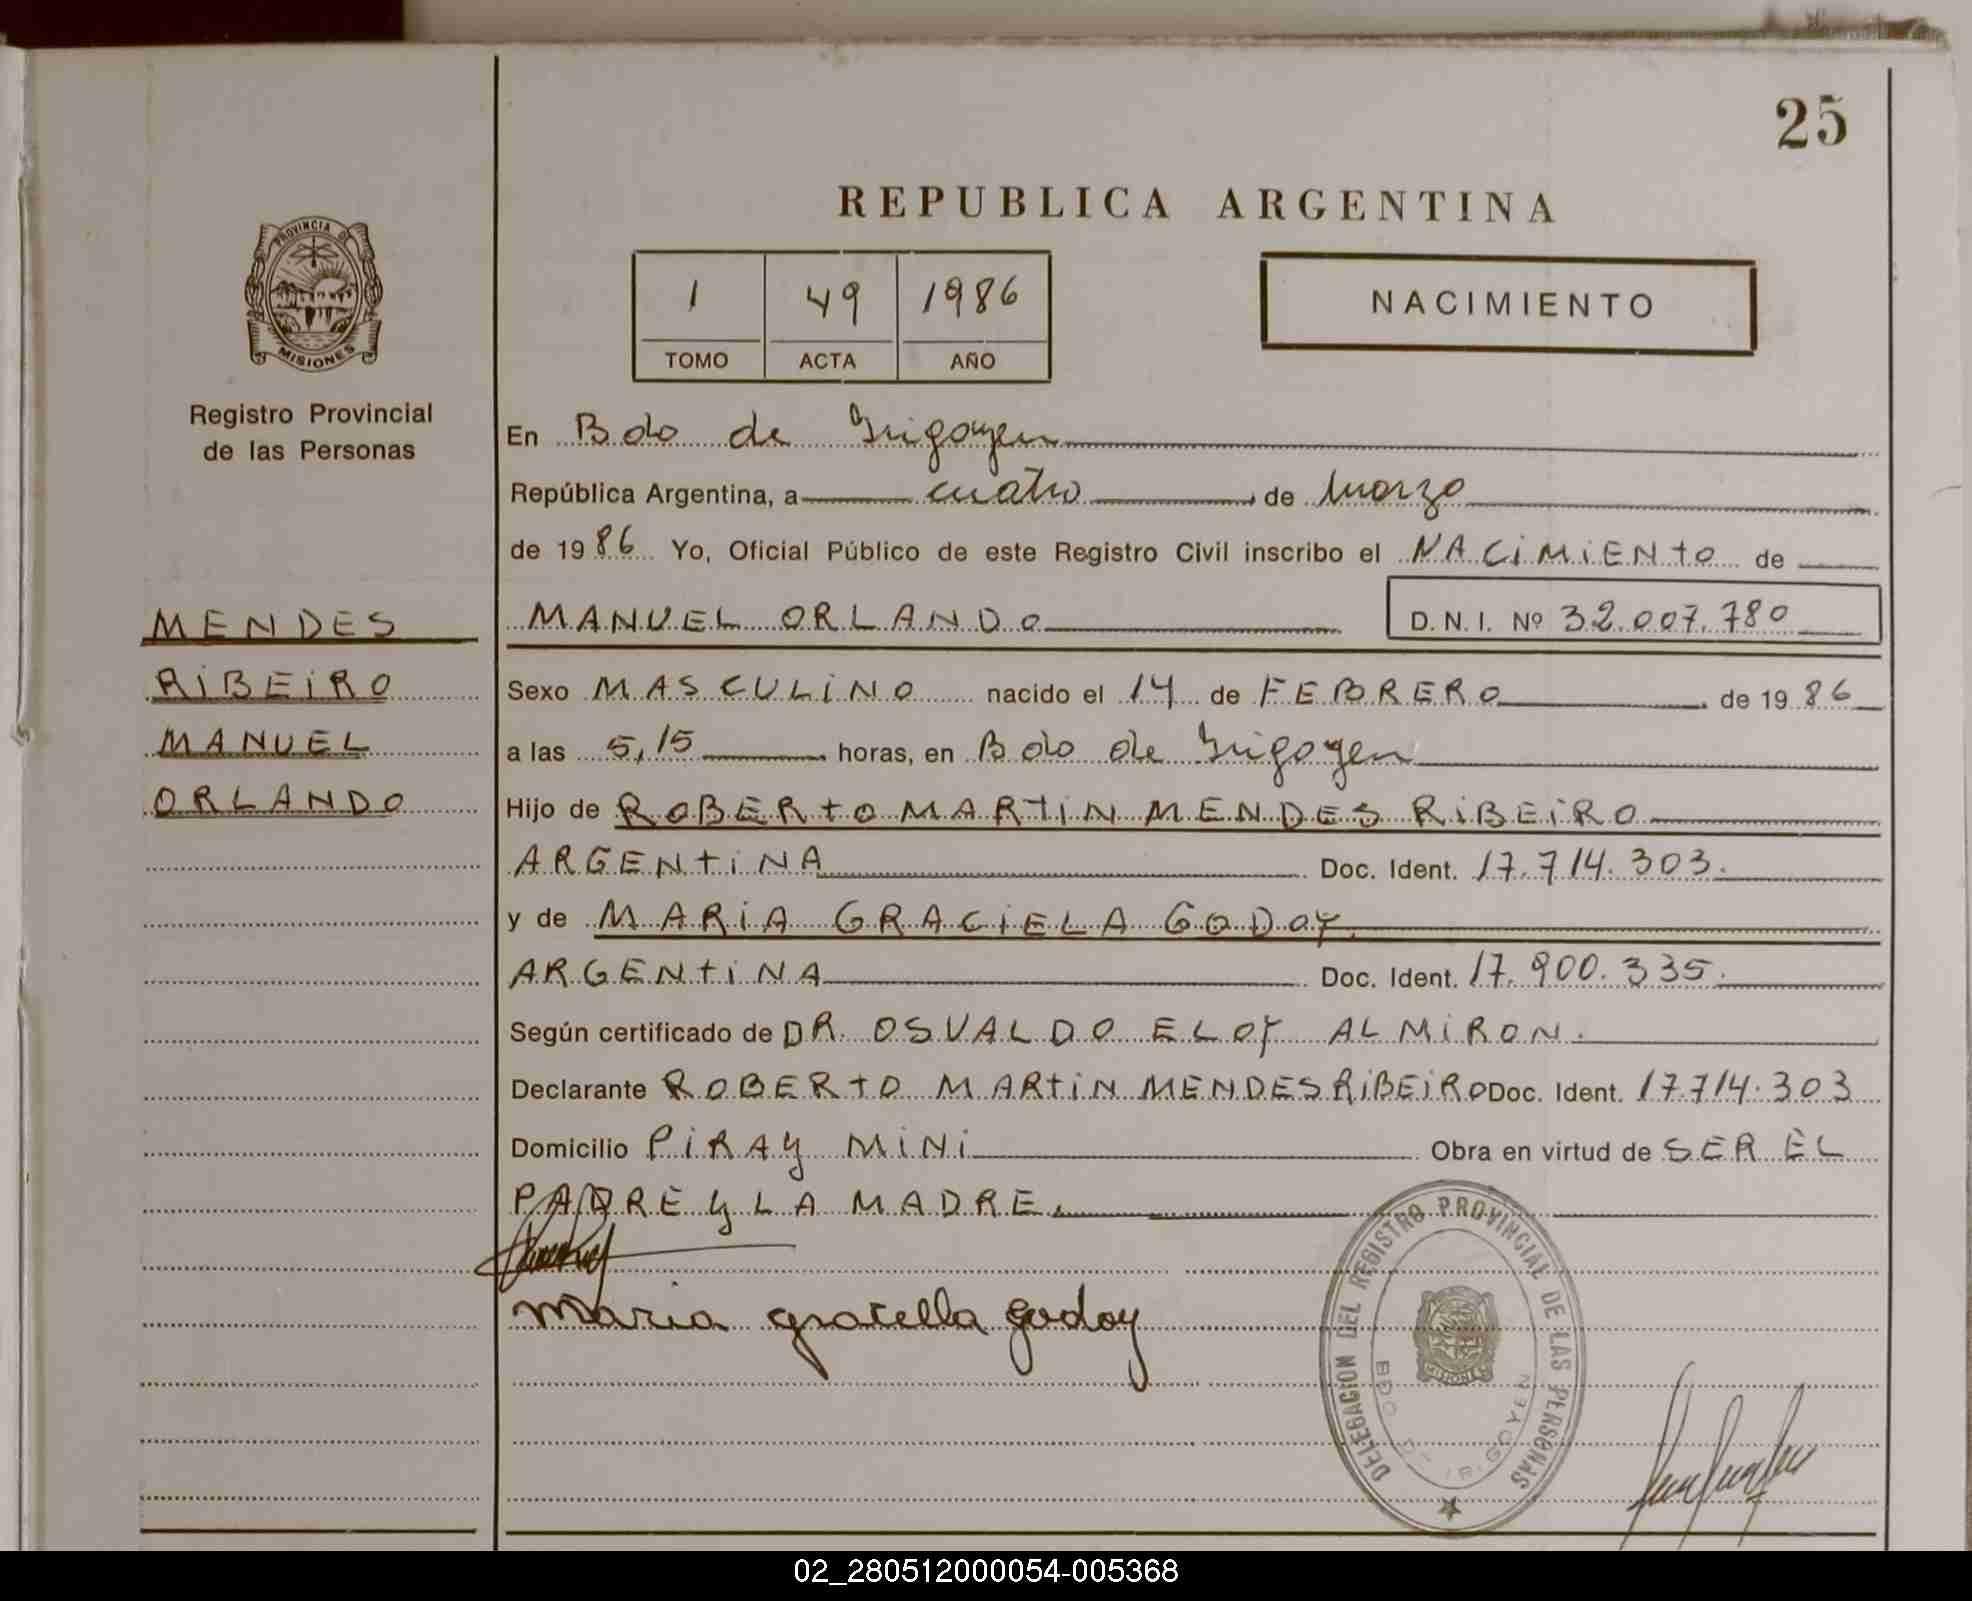 25
REPUBLICA ARGENTINA
PROVINCIA DE
MISIONES
1 49 1986
TOMO ACTA AÑO
NACIMIENTO
Registro Provincial
de las Personas
MENDES
RIBEIRO
MANUEL
ORLANDO
En Bdo de Irigoyen
República Argentina, a cuatro de marzo
de 1986 Yo, Oficial Público de este Registro Civil inscribo el NACIMIENTO de
MANUEL ORLANDO D. N. I. Nº 32.007.780
Sexo MASCULINO nacido el 14 de FEBRERO de 1986
a las 5,15 horas, en Bdo de Irigoyen
Hijo de ROBERTO MARTIN MENDES RIBEIRO
ARGENTINA Doc. Ident. 17.714.303.
y de MARIA GRACIELA GODOY
ARGENTINA Doc. Ident. 17.900.335.
Según certificado de DR. OSVALDO ELOY ALMIRON.
Declarante ROBERTO MARTIN MENDES RIBEIRO Doc. Ident. 17.714.303
Domicilio PIRAY MINI Obra en virtud de SER EL
PADRE y LA MADRE.
maria graciella godoy
DELEGACION DEL REGISTRO PROVINCIAL DE LAS PERSONAS
BDO DE IRIGOYEN
02_280512000054-005368